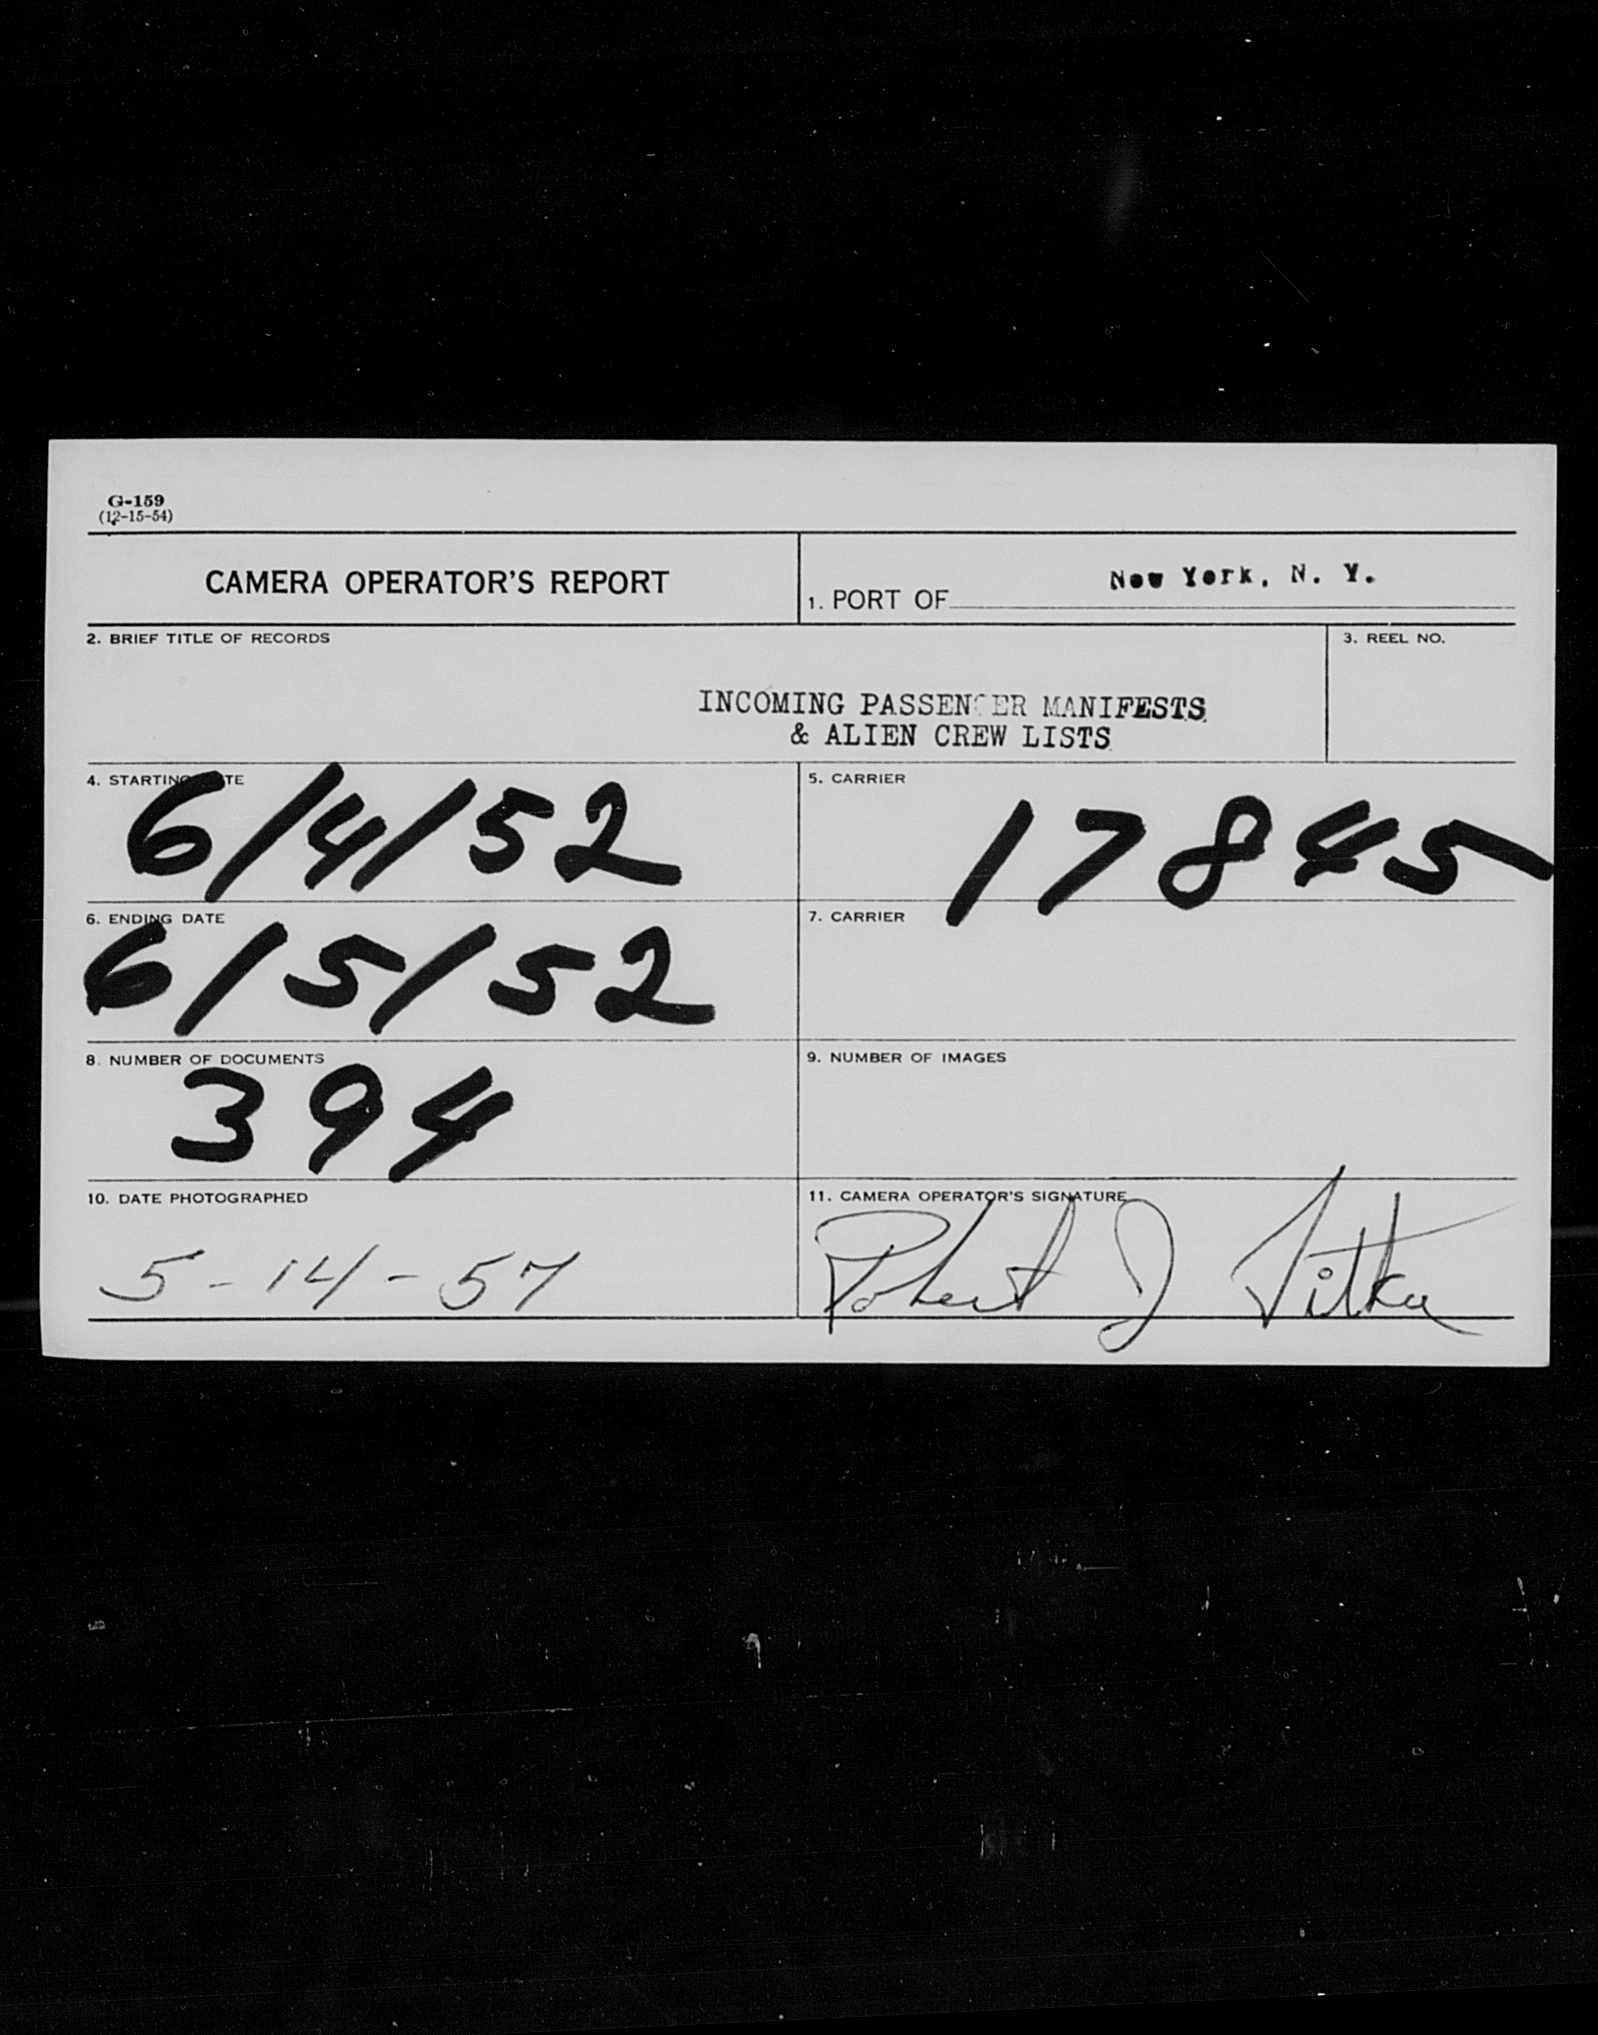 G-159
(12-15-54)
CAMERA OPERATOR'S REPORT
1. PORT OF New York, N. Y.
2. BRIEF TITLE OF RECORDS
3. REEL NO.
INCOMING PASSENGER MANIFESTS
& ALIEN CREW LISTS
4. STARTING DATE
6/4/52
5. CARRIER
17845
6. ENDING DATE
6/5/52
7. CARRIER
8. NUMBER OF DOCUMENTS
394
9. NUMBER OF IMAGES
10. DATE PHOTOGRAPHED
5-14-57
11. CAMERA OPERATOR'S SIGNATURE
Robert J